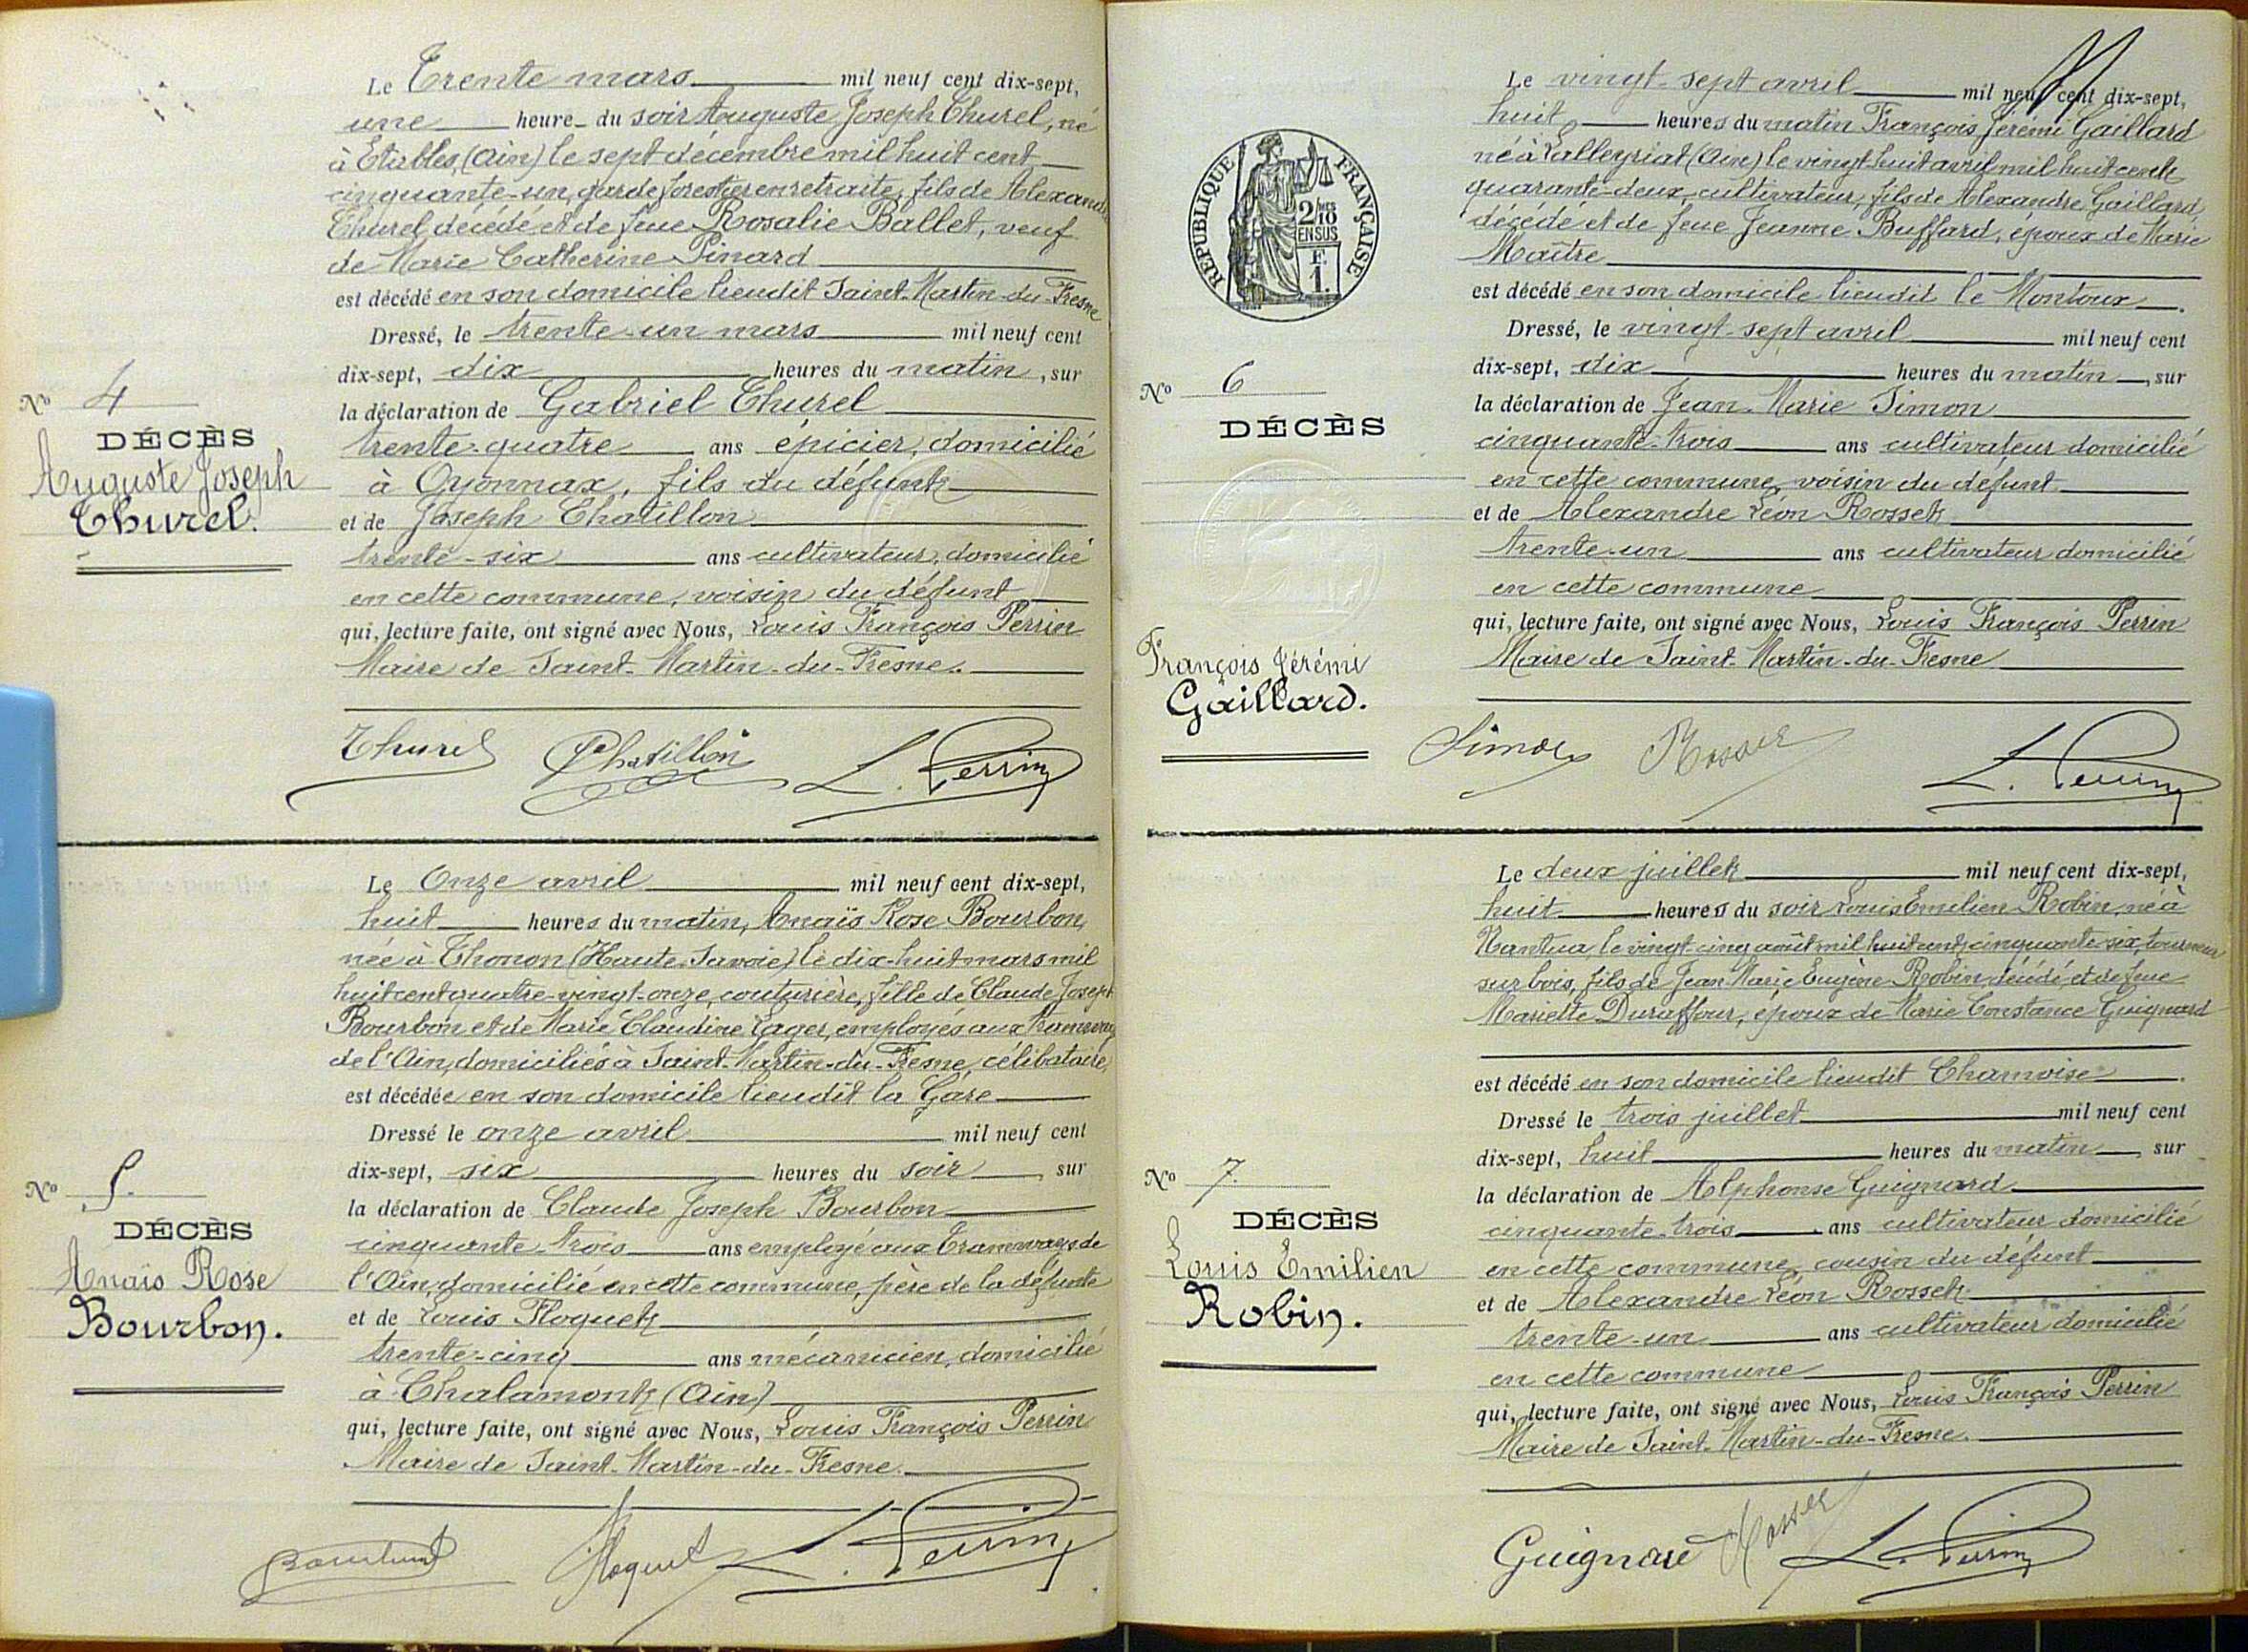 Le Trente mars mil neuf cent dix-sept,
une heure du soir Auguste Joseph Thurel, né
à Étables, (Ain) le sept décembre mil huit cent
cinquante-un, garde forestier en retraite, fils de Alexandre
Thurel décédé et de feue Rosalie Ballet, veuf
de Marie Catherine Pinard
est décédé en son domicile lieudit Saint-Martin-du-Fresne
Dressé, le trente-un mars mil neuf cent
dix-sept, dix heures du matin, sur
la déclaration de Gabriel Thurel
trente-quatre ans épicier, domicilié
à Oyonnax, fils du défunt
et de Joseph Chatillon
trente-six ans cultivateur, domicilié
en cette commune, voisin du défunt
qui, lecture faite, ont signé avec Nous, Louis François Perrin
Maire de Saint-Martin-du-Fresne.
No 4
DÉCÈS
Auguste Joseph
Thurel.
Thurel Chatillon L. Perrin
Le Onze avril mil neuf cent dix-sept,
huit heures du matin, Anaïs Rose Bourbon,
née à Thonon (Haute-Savoie) le dix-huit mars mil
huit cent quatre-vingt-onze, couturière, fille de Claude Joseph
Bourbon et de Marie Claudine Lager, employés aux Tramways
de l'Ain, domiciliés à Saint-Martin-du-Fresne, célibataire,
est décédée en son domicile lieudit la Gare
Dressé le onze avril mil neuf cent
dix-sept, six heures du soir, sur
la déclaration de Claude Joseph Bourbon
cinquante-trois ans employé aux Tramways de
l'Ain, domicilié en cette commune, père de la défunte
et de Louis Floquet
trente-cinq ans mécanicien, domicilié
à Chalamont (Ain)
qui, lecture faite, ont signé avec Nous, Louis François Perrin
Maire de Saint-Martin-du-Fresne.
No 5.
DÉCÈS
Anaïs Rose
Bourbon.
Bourbon Floquet L. Perrin
Le vingt-sept avril mil neuf cent dix-sept,
huit heures du matin François Jérémi Gaillard
né à Lalleyriat (Ain) le vingt-huit avril mil huit cent
quarante-deux, cultivateur, fils de Alexandre Gaillard,
décédé et de feue Jeanne Buffard, époux de Marie
Maître
est décédé en son domicile lieudit le Montoux.
Dressé, le vingt-sept avril mil neuf cent
dix-sept, dix heures du matin, sur
la déclaration de Jean-Marie Simon
cinquante-trois ans cultivateur domicilié
en cette commune, voisin du défunt
et de Alexandre Léon Rosset
trente-un ans cultivateur domicilié
en cette commune
qui, lecture faite, ont signé avec Nous, Louis François Perrin
Maire de Saint-Martin-du-Fresne
RÉPUBLIQUE FRANÇAISE
2/10 EN SUS
F. 1.
No 6
DÉCÈS
François Jérémi
Gaillard.
Simon Rosset L. Perrin
Le deux juillet mil neuf cent dix-sept,
huit heures du soir Louis Emilien Robin, né à
Nantua, le vingt-cinq août mil huit cent cinquante-six, tourneur
sur bois, fils de Jean Marie Eugène Robin décédé et de feue
Mariette Duraffour, époux de Marie Constance Guignard
est décédé en son domicile lieudit Chamoise.
Dressé le trois juillet mil neuf cent
dix-sept, huit heures du matin, sur
la déclaration de Alphonse Guignard
cinquante-trois ans cultivateur domicilié
en cette commune, cousin du défunt
et de Alexandre Léon Rosset
trente-un ans cultivateur domicilié
en cette commune
qui, lecture faite, ont signé avec Nous, Louis François Perrin
Maire de Saint-Martin-du-Fresne.
No 7.
DÉCÈS
Louis Emilien
Robin.
Guignard Rosset L. Perrin